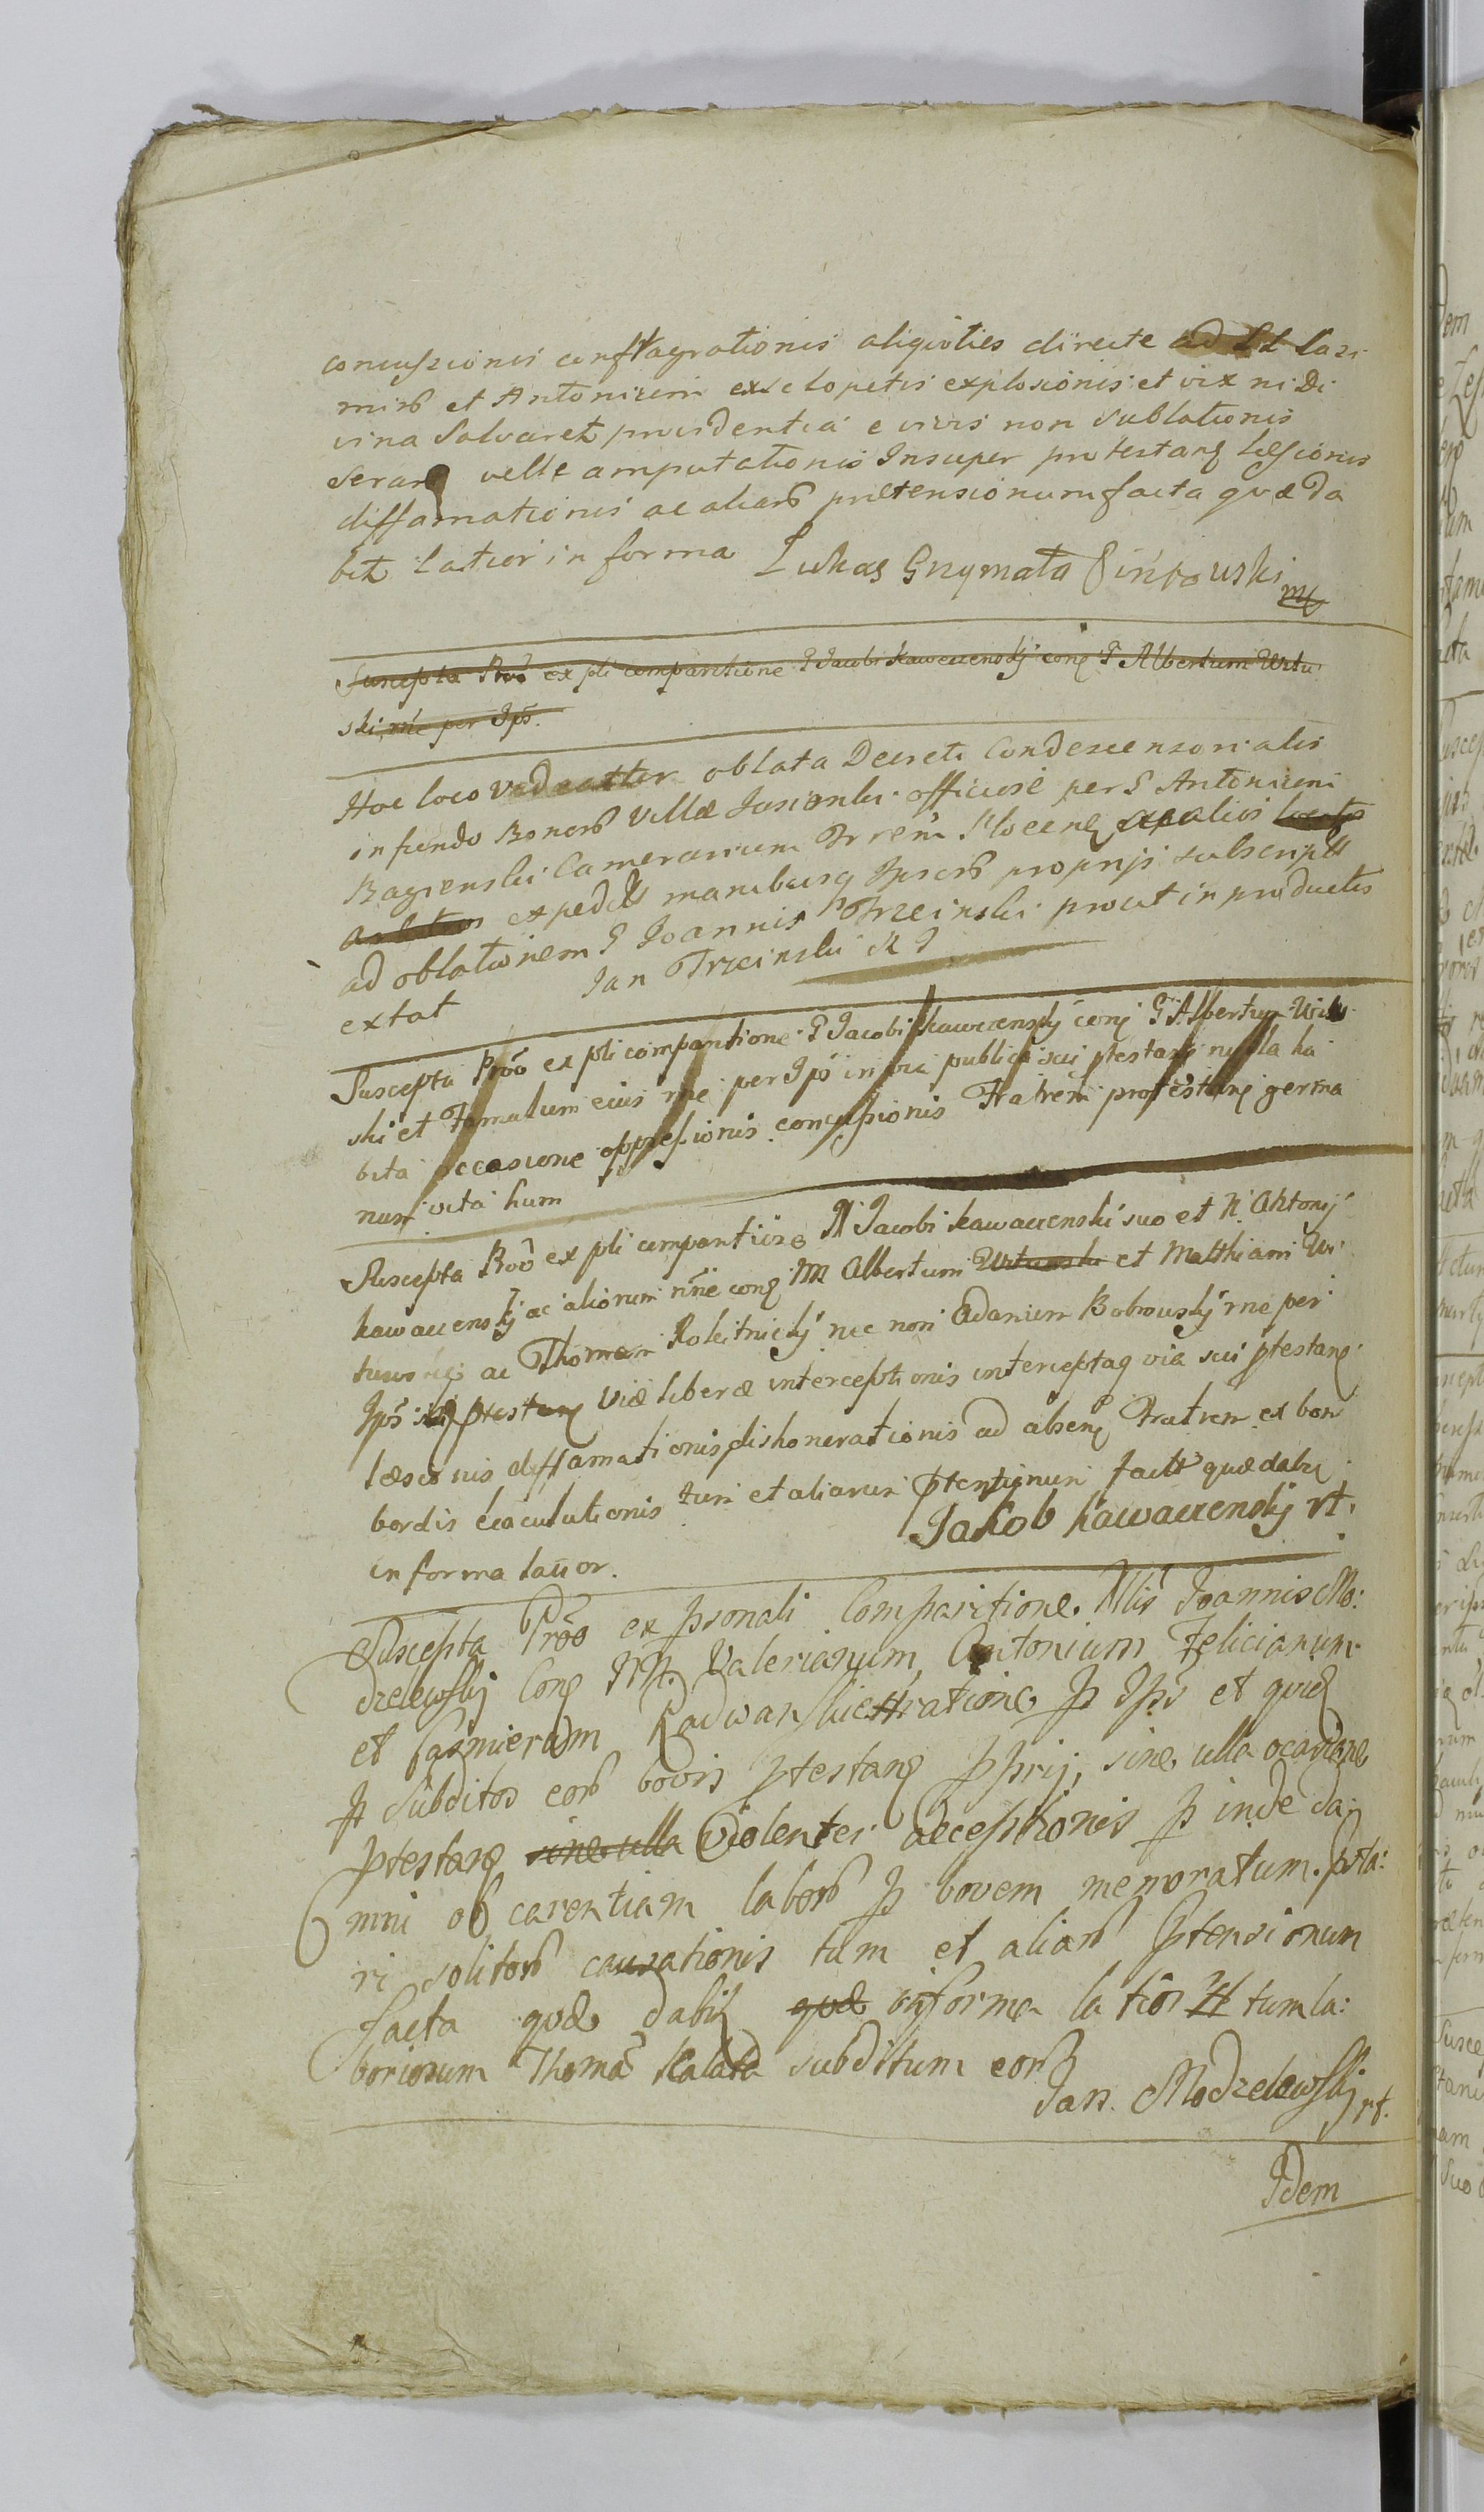 concussionis conflagrationis aliqvoties directe ad LL Cazi
mirũ et Antonium ex sclopetis explosionis et vix ni Di
vina Salvaret providentia e vivis non sublationis
Serarq velle amputationis Insuper protestanq Læsionis
diffamationis ac aliarũ prætensionum facta qvæ da
bit latior in forma Lukas Grzymała
Suscepta Prõõ ex pli comparitione G Jacobi Kawecenskÿ conq G Albertum Witu
ski rñe per Ips.
Hoc loco videatur oblata Decreti Condescensorialis
in fundo Bonorũ Villæ officiose per G Antonium
Bagienski Camerarium Trrem ac alios
expedit manibusq Ipsorũ proprijs subscripti
ad oblationem G Joannis Trzcinski prout in productis
extat Jan Trzcinski
Suscepta Prõõ ex pli comparitione G Jacobi Kaweceenskÿ conq G Albertum Witu
ski et Famulum eius rñe per Ips in via publica sui ptestanq nulla ha
bita occasione oppressionis concussionis Fratrem protestanq germa
num vita hum
Suscepta Prõõ ex pli comparitione N Jacobi Kawaceenski suo et N. Antonÿ
Kawaceenskÿ ac aliorum nñe conq NN Albertum Witunski et Matthiam Wi
tunskij ac Thomam Rokitnickÿ nec non Adamum Bobrouskÿ rñe per
Ips ptestanq Viæ liberæ interceptionis interceptaq via sui ptestanq
læsionis diffamationis dishonerationis ad absenq Fratrem ex bon
bardis eiaculationis tum et aliarum ptensionum facta quæ dabit
in forma latior. Jakob Kawaceenskÿ
Suscepta Prõõ ex psonali Comparitione Mis Joannis Mo:
dzelewskij Conq NN. Valerianum, Antonium Felicianum
et Cazmierum Radwanskie ratione p Ips et qvidq
p Subditos eorũ bovis ptestanq pprij, sine ulla ocasione
ptestanq sine ulla Violenter acceptionis p inde da:
mni ob carentiam laborũ p bovem memoratum. psta:
ri solitorũ causationis tum et aliarũ Ptensionum
facta qvæ dabit qvæ in forma latior et tum la:
boriosum Thomã Kalata subditum eorũ
Jan. Modzelewskij
Idem